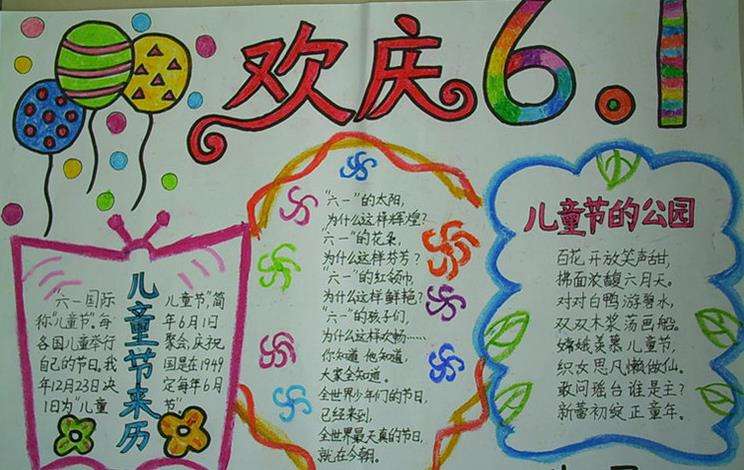 欢庆6.1
儿童节来历
"六一国际
称"儿童节".每
各国儿童举行
自己的节日.我
年12月23日决
1日为"儿童
儿童节".简
年6月1日
聚会.庆祝
国是在1949
定每年6月
节"
"六一"的太阳,
为什么这样辉煌?
"六一"的花朵,
为什么这样芬芳?
"六一"的红领巾
为什么这样鲜艳?
"六一"的孩子们,
为什么这样欢畅……
你知道 他知道,
大家全知道。
全世界少年们的节日,
已经来到,
全世界最天真的节日,
就在今朝。
儿童节的公园
百花开放笑声甜,
拂面浓馥六月天。
对对白鸭游碧水,
双双木桨荡画船。
嫦娥羡慕儿童节,
织女思凡懒做仙。
敢问瑶台谁是主?
新蕾初绽正童年。